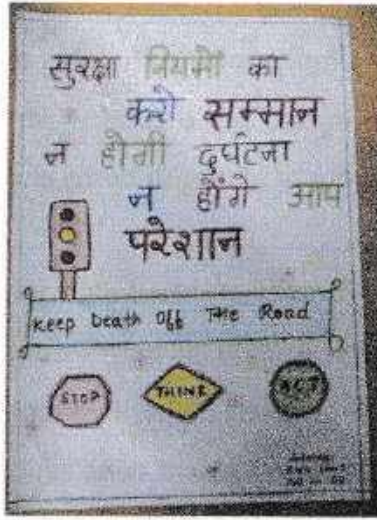 सुरक्षा नियमों का
करो सम्मान
न होगी दुर्घटना
न होंगे आप
परेशान
Keep Death Off The Road
STOP THINK ACT